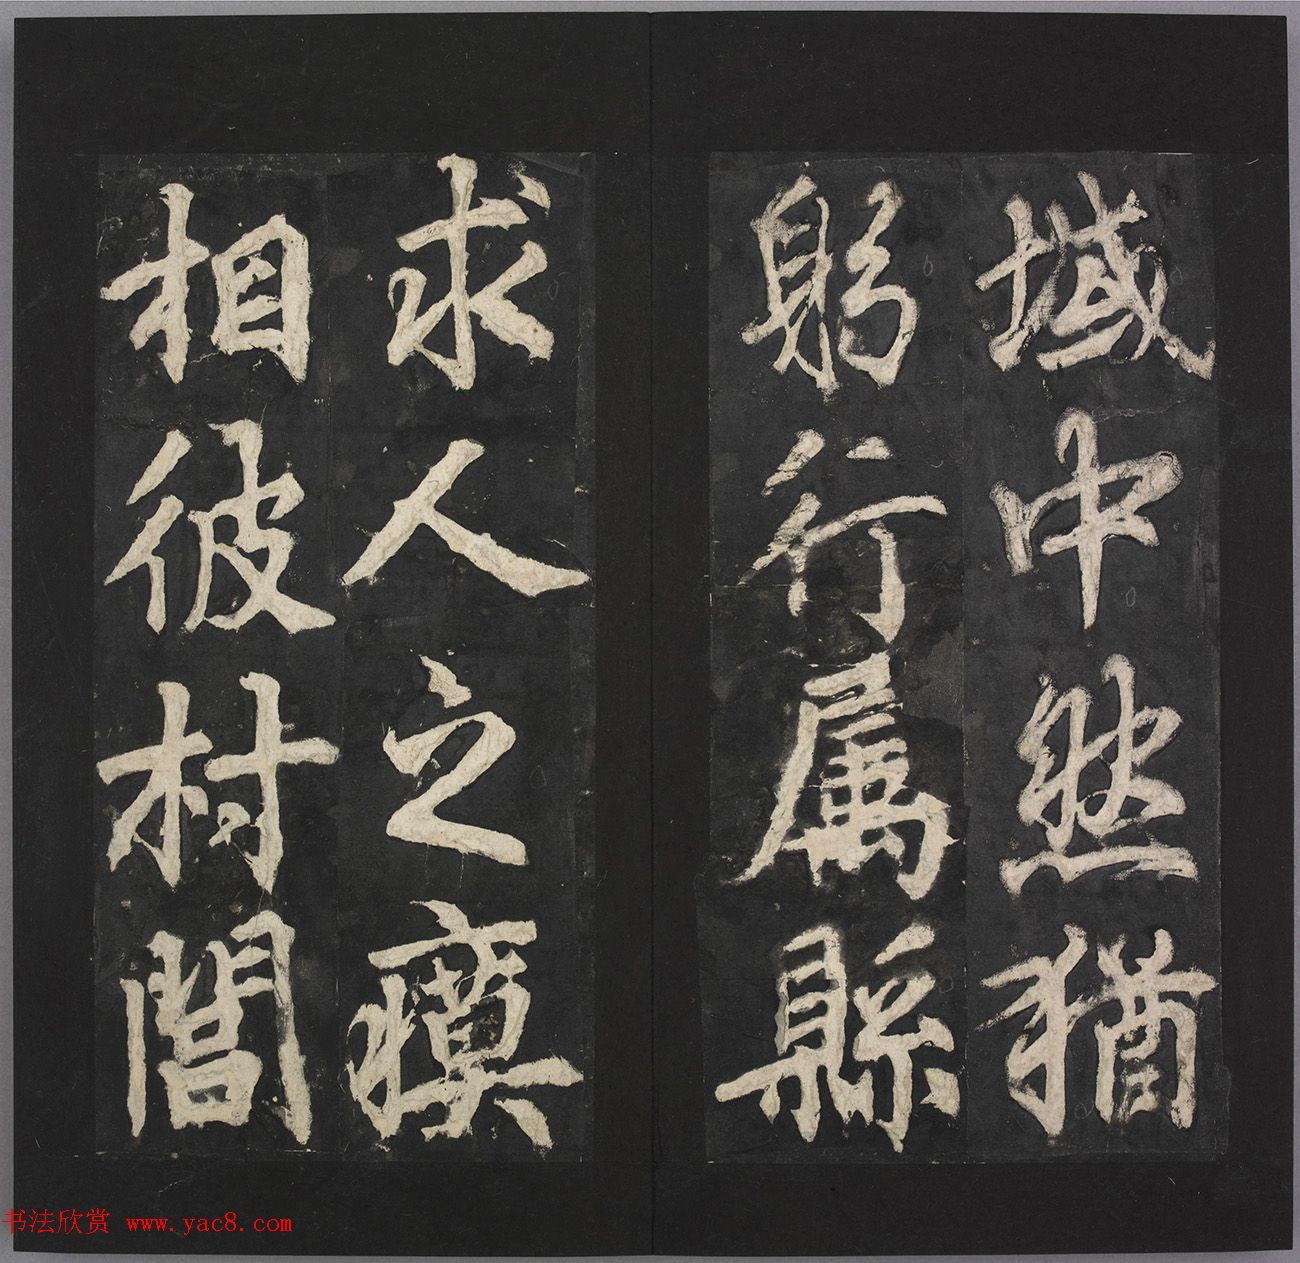 域中然猶
躬行属縣
求人之瘼
相彼村閭
书法欣赏 www.yac8.com